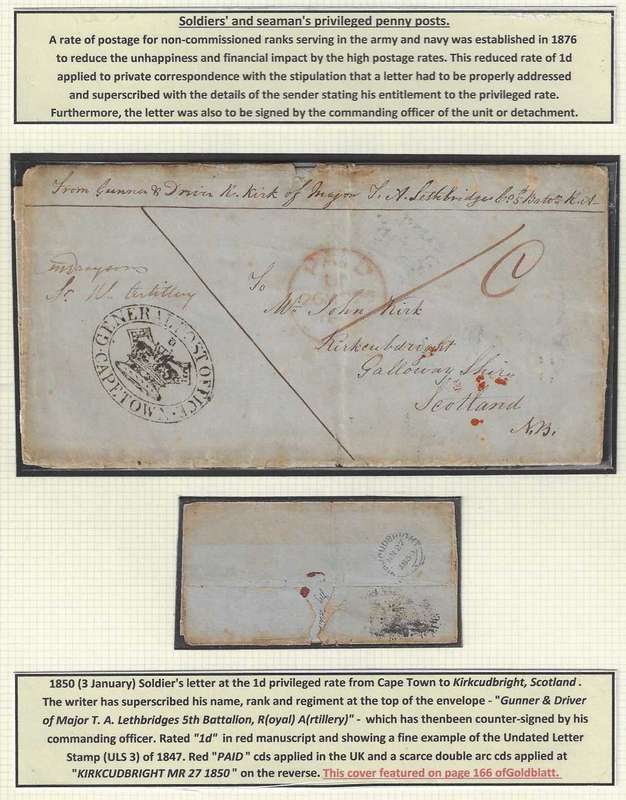 Soldiers' and seaman's privileged penny posts.
A rate of postage for non-commissioned ranks serving in the army and navy was established in 1876
to reduce the unhappiness and financial impact by the high postage rates. This reduced rate of 1d
applied to private correspondence with the stipulation that a letter had to be properly addressed
and superscribed with the details of the sender stating his entitlement to the privileged rate.
Furthermore, the letter was also to be signed by the commanding officer of the unit or detachment.
From Gunner & Driver K. Kirk of Major T. A. Lethbridges Co. 5 Batn. R.A.
PAID
To
Mr. John Kirk
Kirkcudbright
Galloway Shire
Scotland
N.B.
GENERAL POST OFFICE
CAPE TOWN
KIRKCUDBRIGHT
1850 (3 January) Soldier's letter at the 1d privileged rate from Cape Town to Kirkcudbright, Scotland .
The writer has superscribed his name, rank and regiment at the top of the envelope - "Gunner & Driver
of Major T. A. Lethbridges 5th Battalion, R(oyal) A(rtillery)" - which has thenbeen counter-signed by his
commanding officer. Rated "1d" in red manuscript and showing a fine example of the Undated Letter
Stamp (ULS 3) of 1847. Red "PAID" cds applied in the UK and a scarce double arc cds applied at
"KIRKCUDBRIGHT MR 27 1850" on the reverse. This cover featured on page 166 ofGoldblatt.